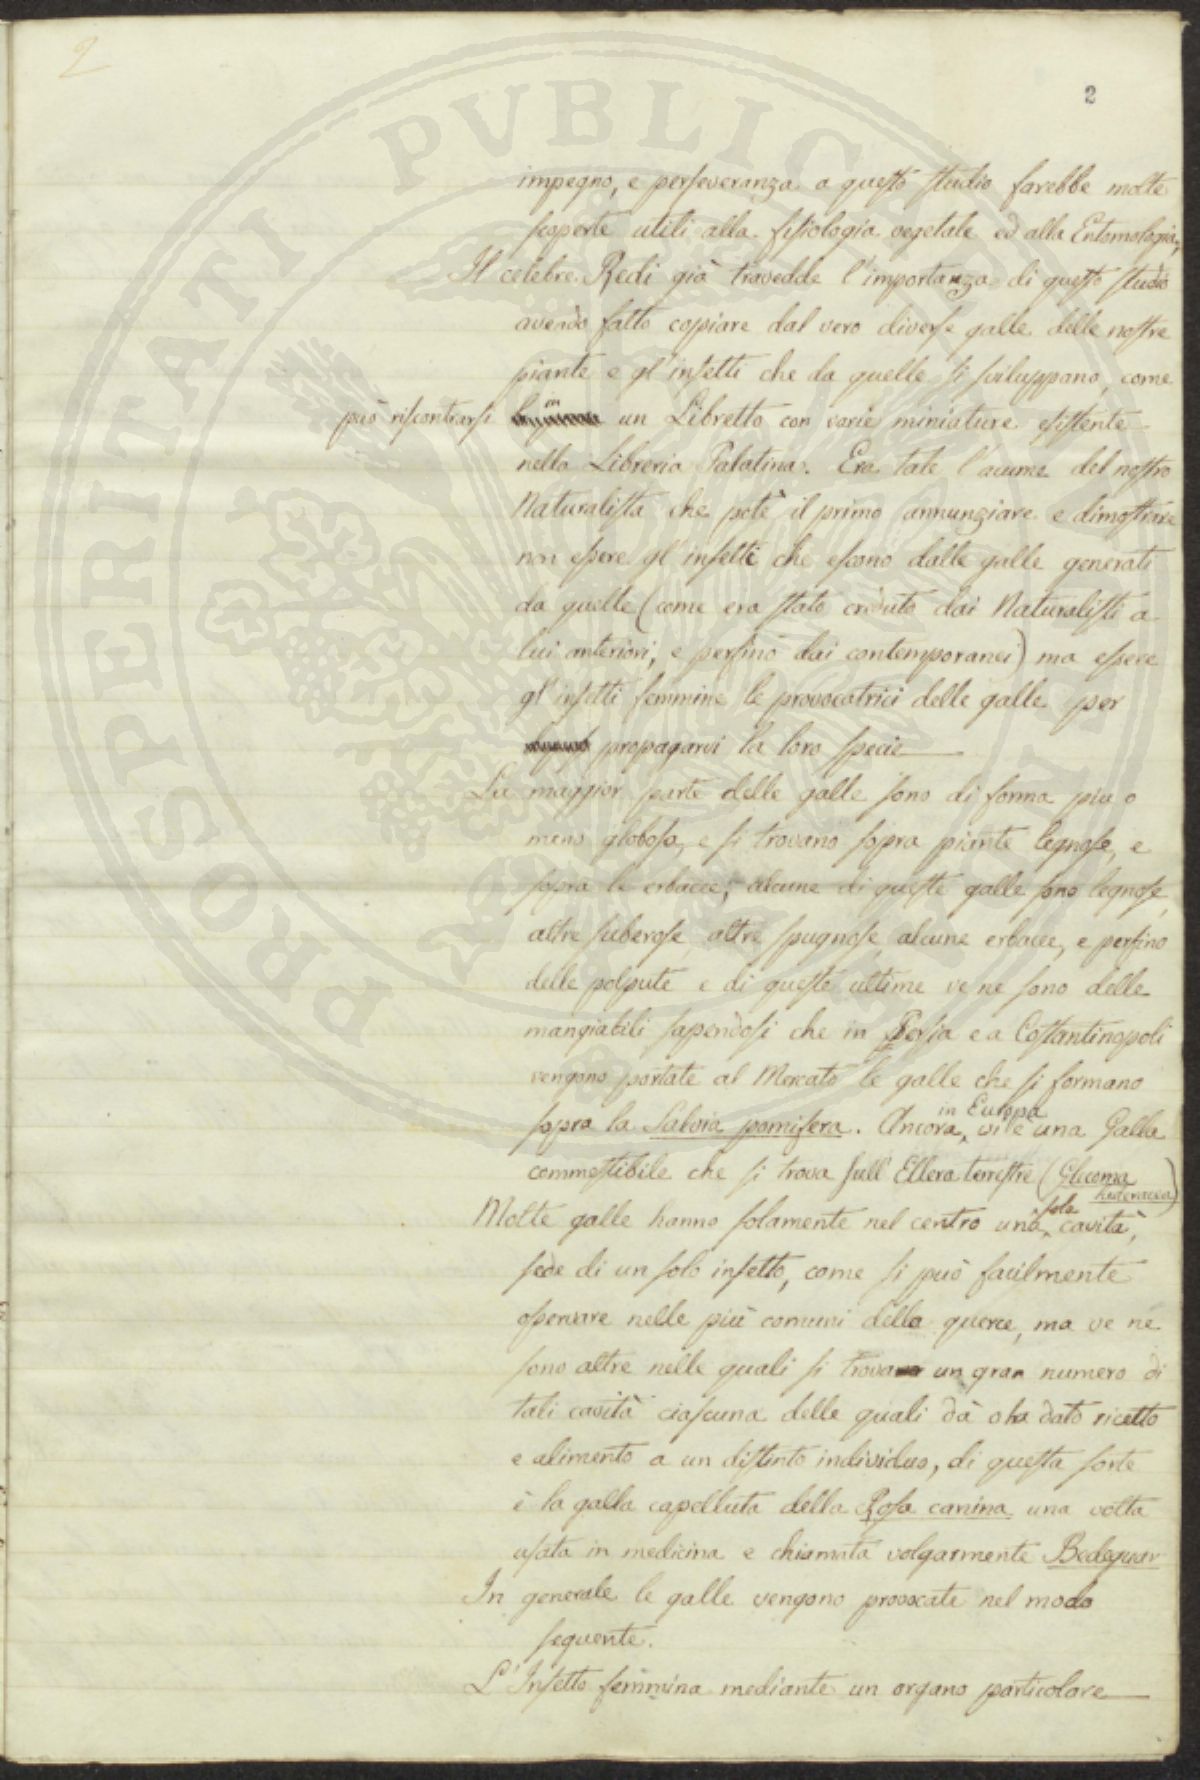 2
2
impegno, e perseveranza a questo studio farebbe molte
scoperte utili alla fisiologia vegetale ed alla Entomologia,
Il celebre Redi già travedde l'importanza di questo studio
avendo fatto copiare dal vero diverse galle delle nostre
piante e gl'insetti che da quelle si sviluppano, come
può riscontrarsi in un Libretto con varie miniature esistente
nella Libreria Palatina. Era tale l'acume del nostro
Naturalista che potè il primo annunziare e dimostrare
non essere gl'insetti che escono dalle galle generati
da quelle (come era stato creduto dai Naturalisti a
lui anteriori, e persino dai contemporanei) ma essere
gl'insetti femmine le provocatrici delle galle per
propagarvi la loro specie
La maggior parte delle galle sono di forma piu o
meno globosa, e si trovano sopra piante legnose, e
sopra le erbacee; alcune di queste galle sono legnose,
altre suberose, altre spugnose, alcune erbacee, e persino
delle polpute e di queste ultime ve ne sono delle
mangiabili sapendosi che in Persia e a Costantinopoli
vengono portate al Mercato le galle che si formano
sopra la Salvia pomifera. Ancora in Europa vi è una Galla
commestibile che si trova sull'Ellera terrestre (Glecoma
hederacea)
Molte galle hanno solamente nel centro una sola cavità,
sede di un solo insetto, come si può facilmente
osservare nelle più comuni della querce, ma ve ne
sono altre nelle quali si trova un gran numero di
tali cavità ciascuna delle quali dà o ha dato ricetto
e alimento a un distinto individuo, di questa sorte
è la galla capelluta della Rosa canina una volta
usata in medicina e chiamata volgarmente Bedeguar
In generale le galle vengono provocate nel modo
seguente.
L'Insetto femmina mediante un organo particolare
PROSPERITATI PUBLICAE